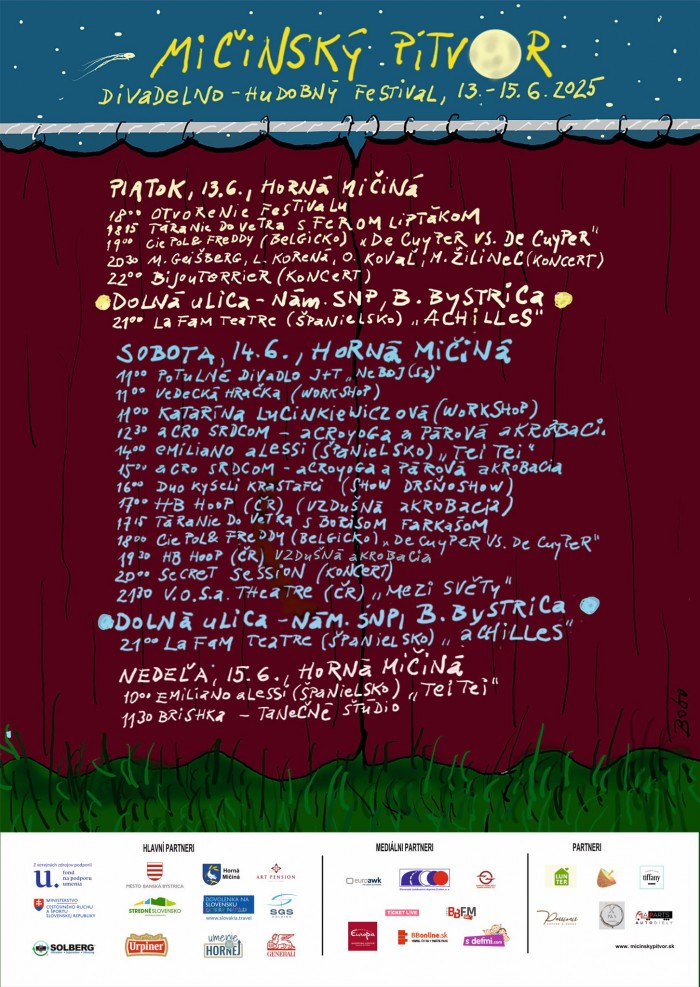 MiČiNSKÝ PíTVOR
DivaDeLNO - HuDOBNÝ FeSTiVaL, 13.-15.6.2025
PiaTOK, 13.6., HORNÁ MiČiNÁ
18⁰⁰ OTVORENie FeSTiVaLu
18¹⁵ TÁRaNie DO VeTRa S FeROM LiPTÁKOM
19⁰⁰ Cie POL & FReDDY (BeLGiCKO) „De CuyPeR VS. De CuyPeR"
20³⁰ M. GeiŠBeRG, L. KOReNÁ, O. KOVaĽ, M. ŽiLiNeC (KONCeRT)
22⁰⁰ BiJOuTeRRieR (KONCeRT)
DOLNÁ uLiCa - NÁM. SNP, B. BySTRiCa
21⁰⁰ La FaM TeaTRe (ŠPaNieLSKO) „ACHiLLeS"
SOBOTa, 14.6., HORNÁ MiČiNÁ
11⁰⁰ POTuLNÉ DiVaDLO J+T „NeBOJ(Sa)"
11⁰⁰ VeDeCKÁ HRaČKa (WORKSHOP)
11⁰⁰ KaTaRíNa LuCiNKieWiCZOVÁ (WORKSHOP)
12³⁰ aCRO SRDCOM - aCROyOGa a PÁROVÁ aKROBaCia
14⁰⁰ eMiLiaNO aLeSSi (ŠPaNieLSKO) „Tei Tei"
15⁰⁰ aCRO SRDCOM - aCROyOGa a PÁROVÁ aKROBaCia
16⁰⁰ DuO KySeLi KRaSTaFCi (SHOW DRSŇOSHOW)
17⁰⁰ HB HOOP (ČR) (VZDuŠNÁ aKROBaCia)
17¹⁵ TÁRaNie DO VeTRa S BORiSOM FaRKaŠOM
18⁰⁰ Cie POL & FReDDY (BeLGiCKO) „De CuyPeR VS. De CuyPeR"
19³⁰ HB HOOP (ČR) VZDuŠNÁ aKROBaCia
20⁰⁰ SeCReT SeSSiON (KONCeRT)
21³⁰ V.O.S.a. THeaTRe (ČR) „MeZi SVĚTy"
DOLNÁ uLiCa - NÁM. SNP, B. BySTRiCa
21⁰⁰ La FaM TeaTRe (ŠPaNieLSKO) „aCHiLLeS"
NEDEĽa, 15.6., HORNÁ MiČiNÁ
10⁰⁰ EMiLiaNO aLeSSi (ŠPaNieLSKO) „Tei Tei"
11³⁰ BRiSHKa - TaNeČNÉ ŠTÚDiO
BOBO
HLAVNÍ PARTNERI
MEDIÁLNI PARTNERI
PARTNERI
Z verejných zdrojov podporil
u. fond na podporu umenia
MESTO BANSKÁ BYSTRICA
Horná Mičiná
ART PENSION
euroawk
LUNTER
tiffany
MINISTERSTVO CESTOVNÉHO RUCHU A ŠPORTU SLOVENSKEJ REPUBLIKY
STREDNÉ SLOVENSKO
DOVOLENKA NA SLOVENSKU
DOBRÝ NÁPAD
www.slovakia.travel
SGS HOLDING
TICKET LIVE
BBFM
PARTS
SOLBERG
Urpiner
umenie v HORNEJ
GENERALI
Európa
BBonline.sk
s defmi.com
www. micinskypitvor.sk